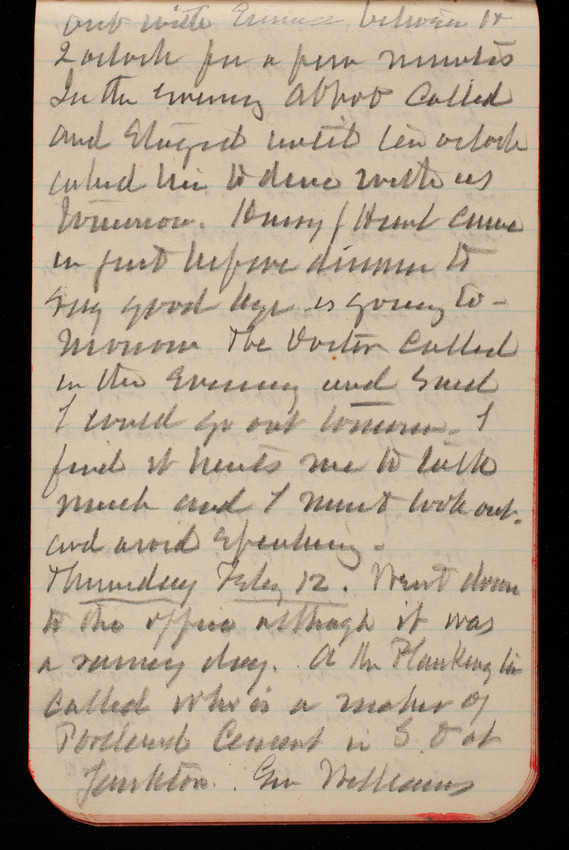 out with between 1 &
2 oclock for a few minutes
In the Evening Abbot called
and stayed until ten oclock
asked him to dine with us
tomorrow. Henry J Hunt came
in just before dinner to
say good bye is going to-
morrow The Doctor called
in the Evening and said
I could go out tomorrow. I
find it hurts me to talk
much and I must look out
and avoid speaking.
Thursday Feby 12. Went down
to the office although it was
a rainy day. A Mr Plankington
called who is a maker of
Portland Cement in S. D at
Yankton. Gen Williams